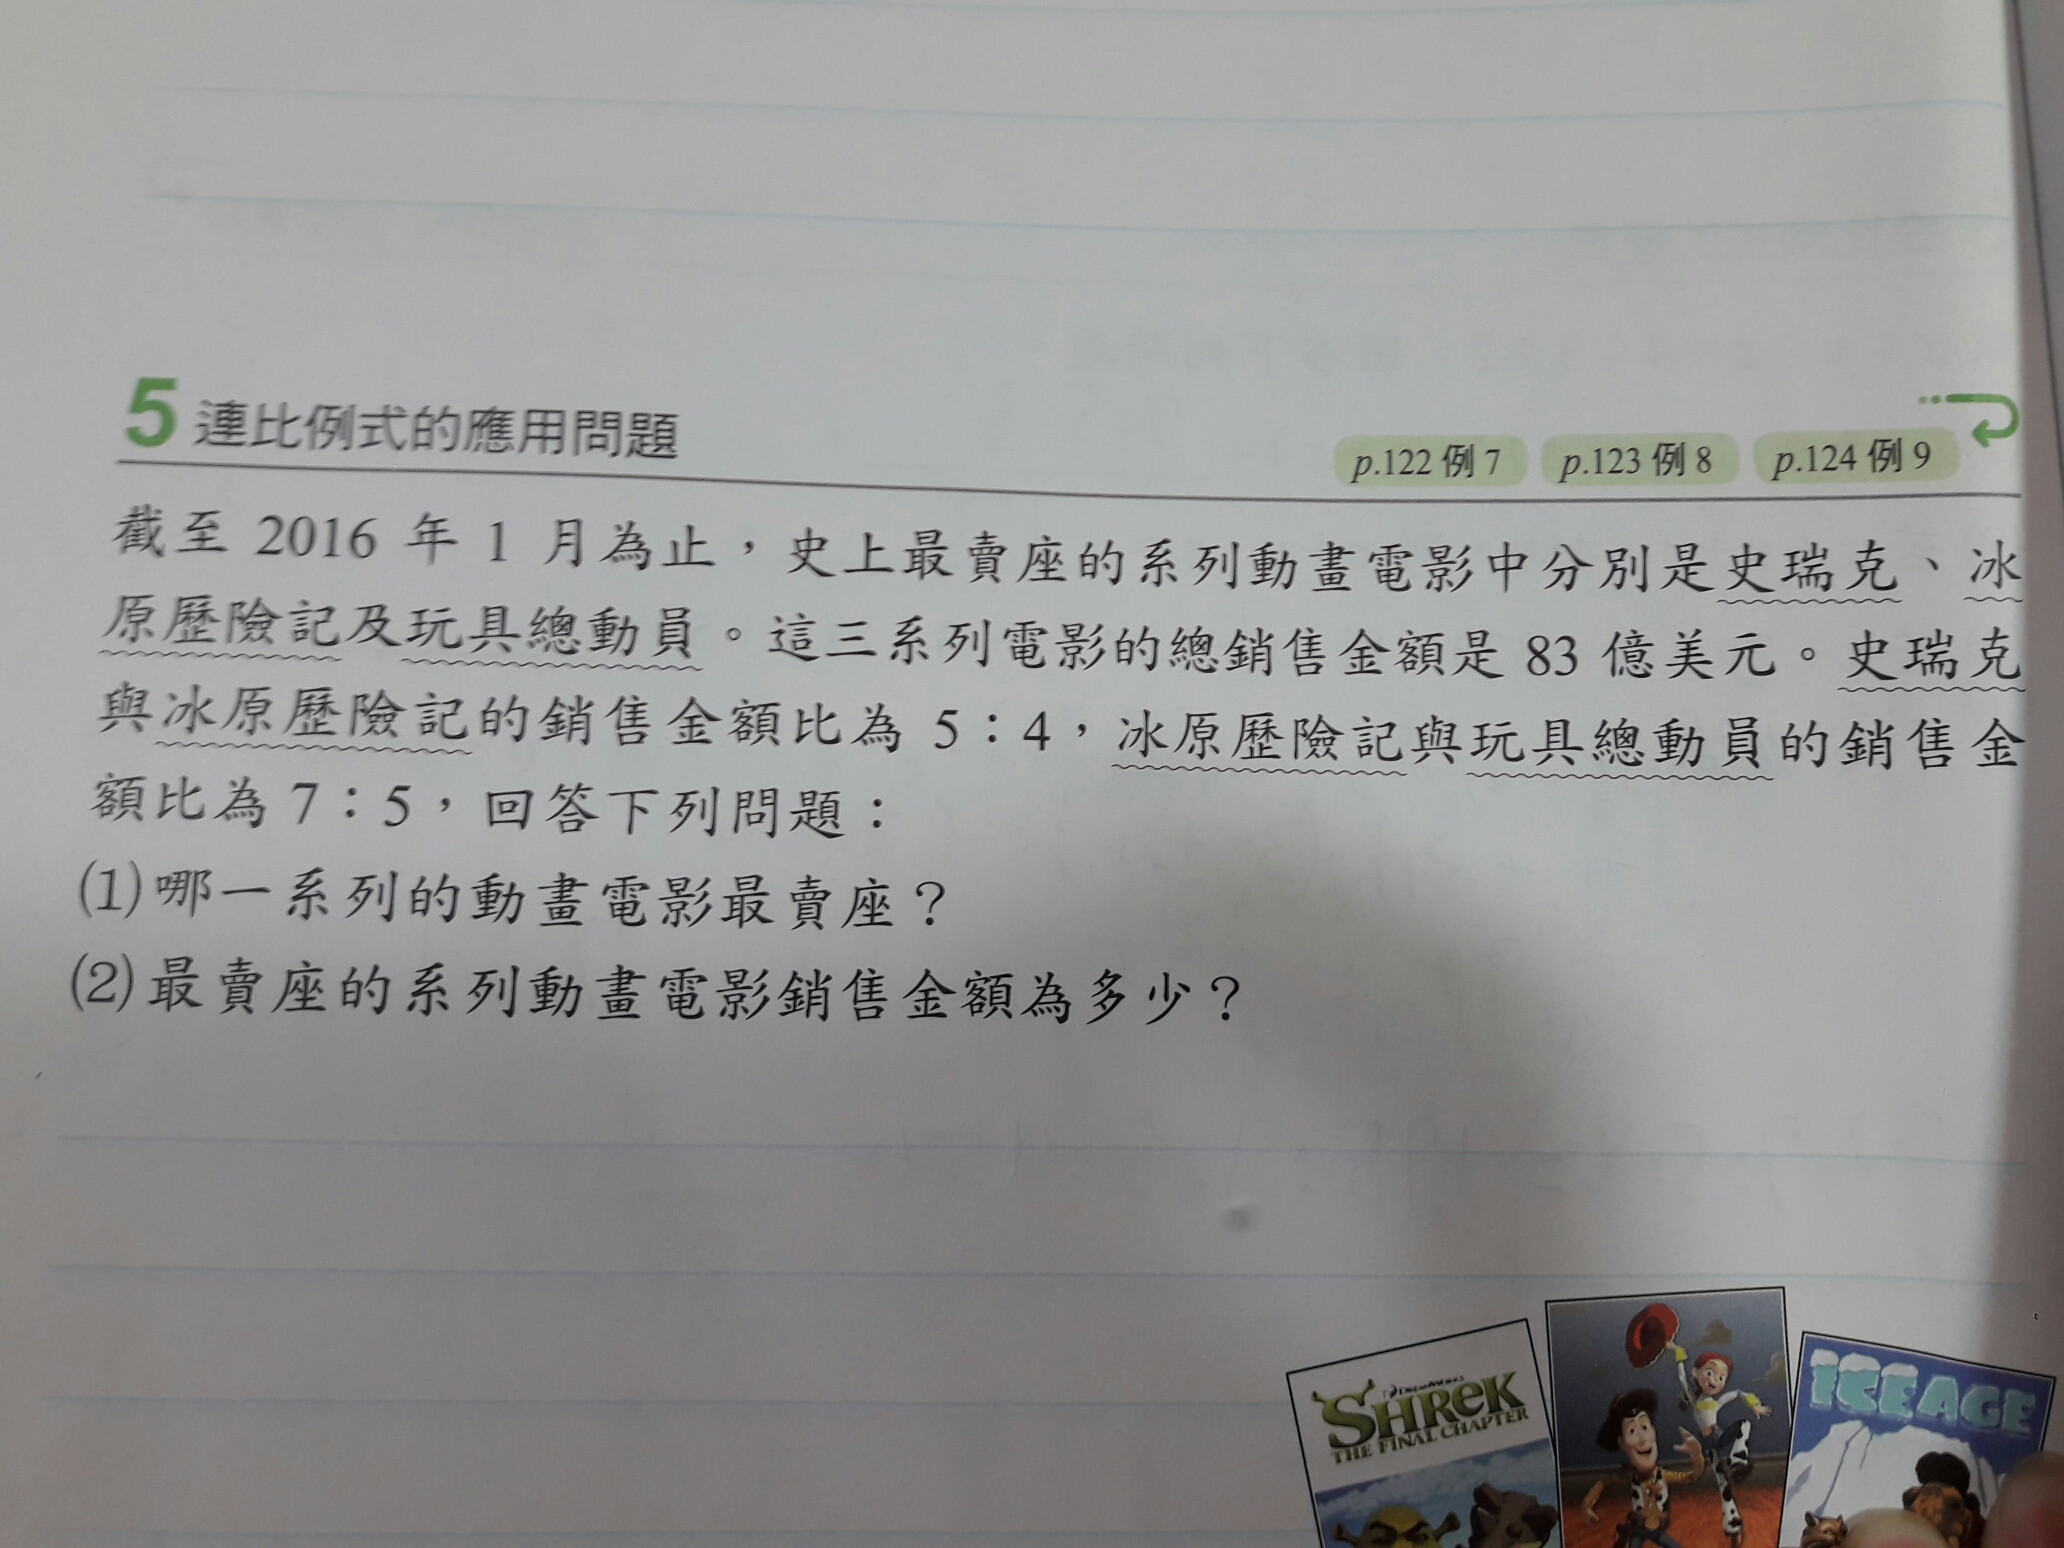 5 連比例式的應用問題
p.122 例 7 p.123 例 8 p.124 例 9
截至 2016 年 1 月為止，史上最賣座的系列動畫電影中分別是史瑞克、冰
原歷險記及玩具總動員。這三系列電影的總銷售金額是 83 億美元。史瑞克
與冰原歷險記的銷售金額比為 5：4，冰原歷險記與玩具總動員的銷售金
額比為 7：5，回答下列問題：
(1)哪一系列的動畫電影最賣座？
(2)最賣座的系列動畫電影銷售金額為多少？
DREAMWORKS
SHREK
THE FINAL CHAPTER
ICE AGE